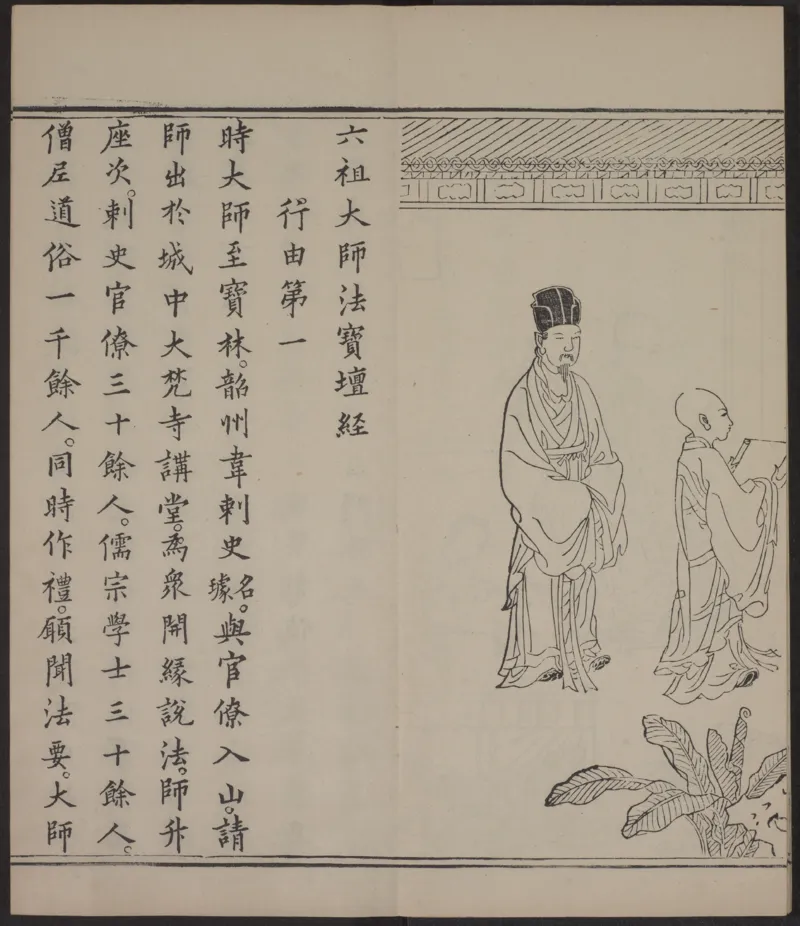 六祖大師法寶壇経
行由第一
時大師至寶林。韶州韋刺史名璩。與官僚入山。請
師出於城中大梵寺講堂。為衆開緣說法。師升
座次。刺史官僚三十餘人。儒宗學士三十餘人。
僧尼道俗一千餘人。同時作禮。願聞法要。大師